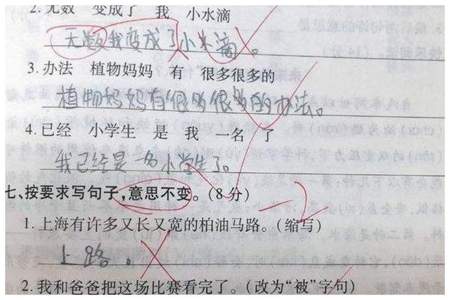 2.无数 变成了 我 小水滴
无数我变成了小水滴。
3.办法 植物妈妈 有 很多很多的
植物妈妈有很多很多的办法。
4.已经 小学生 是 我 一名 了
我已经是一名小学生了。
七、按要求写句子,意思不变。(8分)
-2
1.上海有许多又长又宽的柏油马路。(缩写)
上路。
2.我和爸爸把这场比赛看完了。(改为“被”字句)